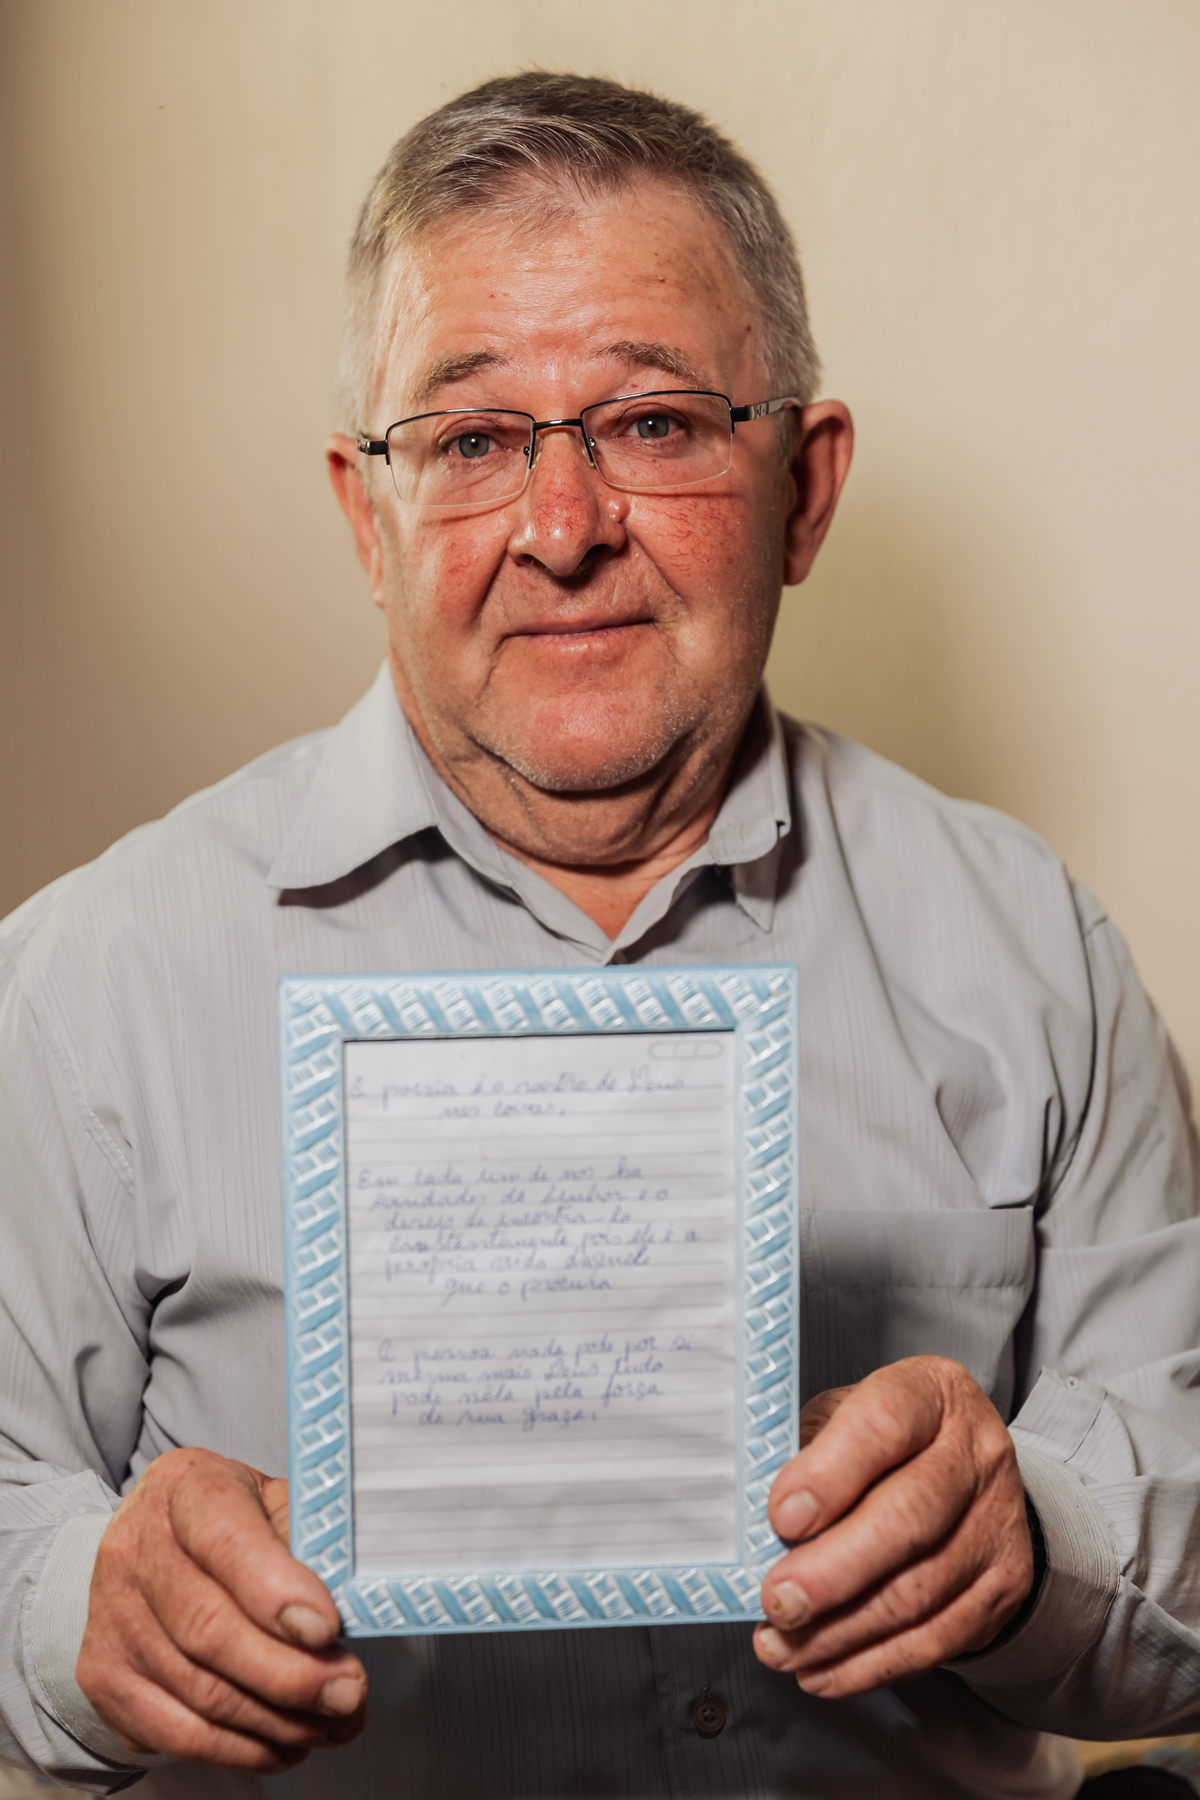 A poesia é o rastro de Deus
nas coisas.
Em cada um de nos ha
saudades do Senhor e o
desejo de encontra-lo
constantemente pois ele é a
propria vida daquele
que o procura
A pessoa nada pode por si
mesma mais Deus tudo
pode nela pela força
de sua graça.